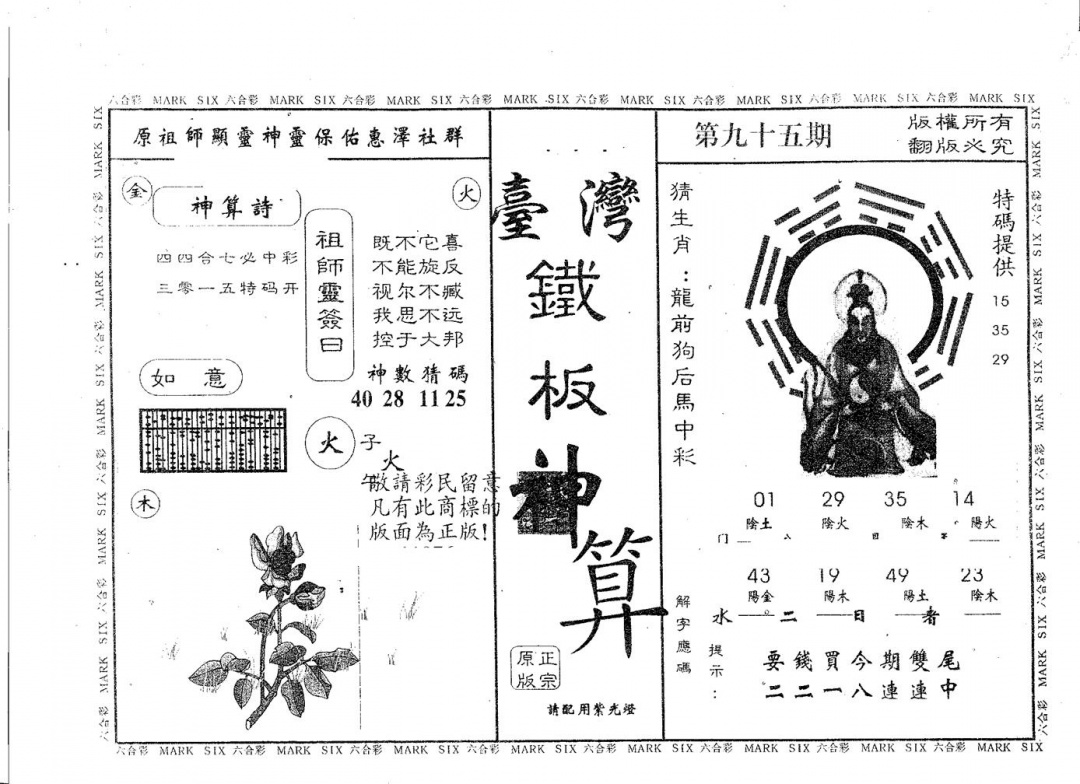 六合彩 MARK SIX 六合彩 MARK SIX 六合彩 MARK SIX 六合彩 MARK SIX 六合彩 MARK SIX 六合彩 MARK SIX 六合彩 MARK SIX 六合彩 MARK SIX
原祖師顯靈神靈保佑惠澤社群
金
神算詩
火
四四合七必中彩
三零一五特码开
祖師靈簽曰
既不它喜
不能旋反
视尔不臧
我思不远
控于大邦
神數猜碼
40 28 11 25
如意
火
子
火
午
敬請彩民留意
凡有此商標的
版面為正版!
木
臺灣
鐵
板
神
算
正宗
原版
請配用紫光燈
第九十五期
版權所有
翻版必究
猜生肖:龍前狗后馬中彩
特碼提供
15
35
29
01 29 35 14
陰土 陰火 陰木 陽火
门
43 19 49 23
陽金 陽木 陽土 陰木
水 二 日 者
解字應碼
提示:
要錢買今期雙尾
二二一八連連中
六合彩 MARK SIX 六合彩 MARK SIX 六合彩 MARK SIX 六合彩 MARK SIX 六合彩 MARK SIX 六合彩 MARK SIX 六合彩 MARK SIX 六合彩 MARK SIX